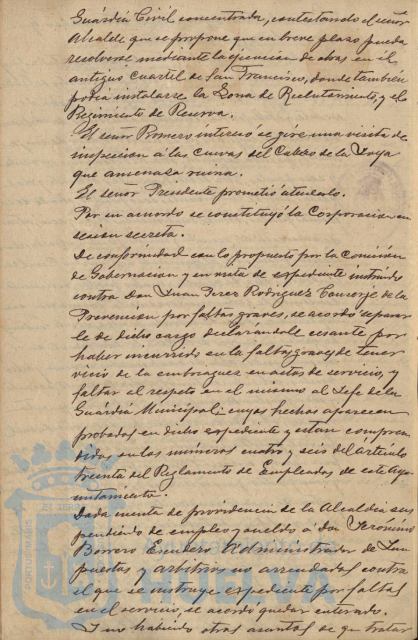 Guardia Civil concentrada, contestando el señor
Alcalde que se propone que en breve plazo pueda
resolverse mediante la ejecucion de obras en el
antiguo Cuartel de San Francisco, donde tambien
podia instalarse la Zona de Reclutamiento, y el
Regimiento de Reserva.
El señor Romero interesó se gire una visita de
inspeccion á las cuevas del Cabezo de la Joya
que amenaza ruina.
El señor Presidente prometió atenderlo.
Por un acuerdo se constituyó la Corporacion en
sesion secreta.
De conformidad con lo propuesto por la Comision
de Gobernacion y en vista de expediente instruido
contra Don Juan Perez Rodriguez Conserje de la
Prevencion por faltas graves, se acordó separar
le de dicho cargo declarándole cesante por
haber incurrido en la faltas graves de tener
vicio de la embriaguez en actos de servicio, y
faltar el respeto en el mismo al Jefe de la
Guardia Municipal: cuyos hechos aparecen
probados en dicho expediente y estan compren
didos en los números cuatro y seis del artículo
treinta del Reglamento de Empleados de este Ayu
ntamiento.
Dada cuenta de providencia de la Alcaldia sus
pendiendo de empleo y sueldo á don Jeronimo
Borrero Escudero Administrador de Im
puestos y arbitrios no arrendados contra
el que se instruye expediente por faltas
en el servicio, se acordó quedar enterado.
Y no habiendo otros asuntos de que tratar
HUELVA